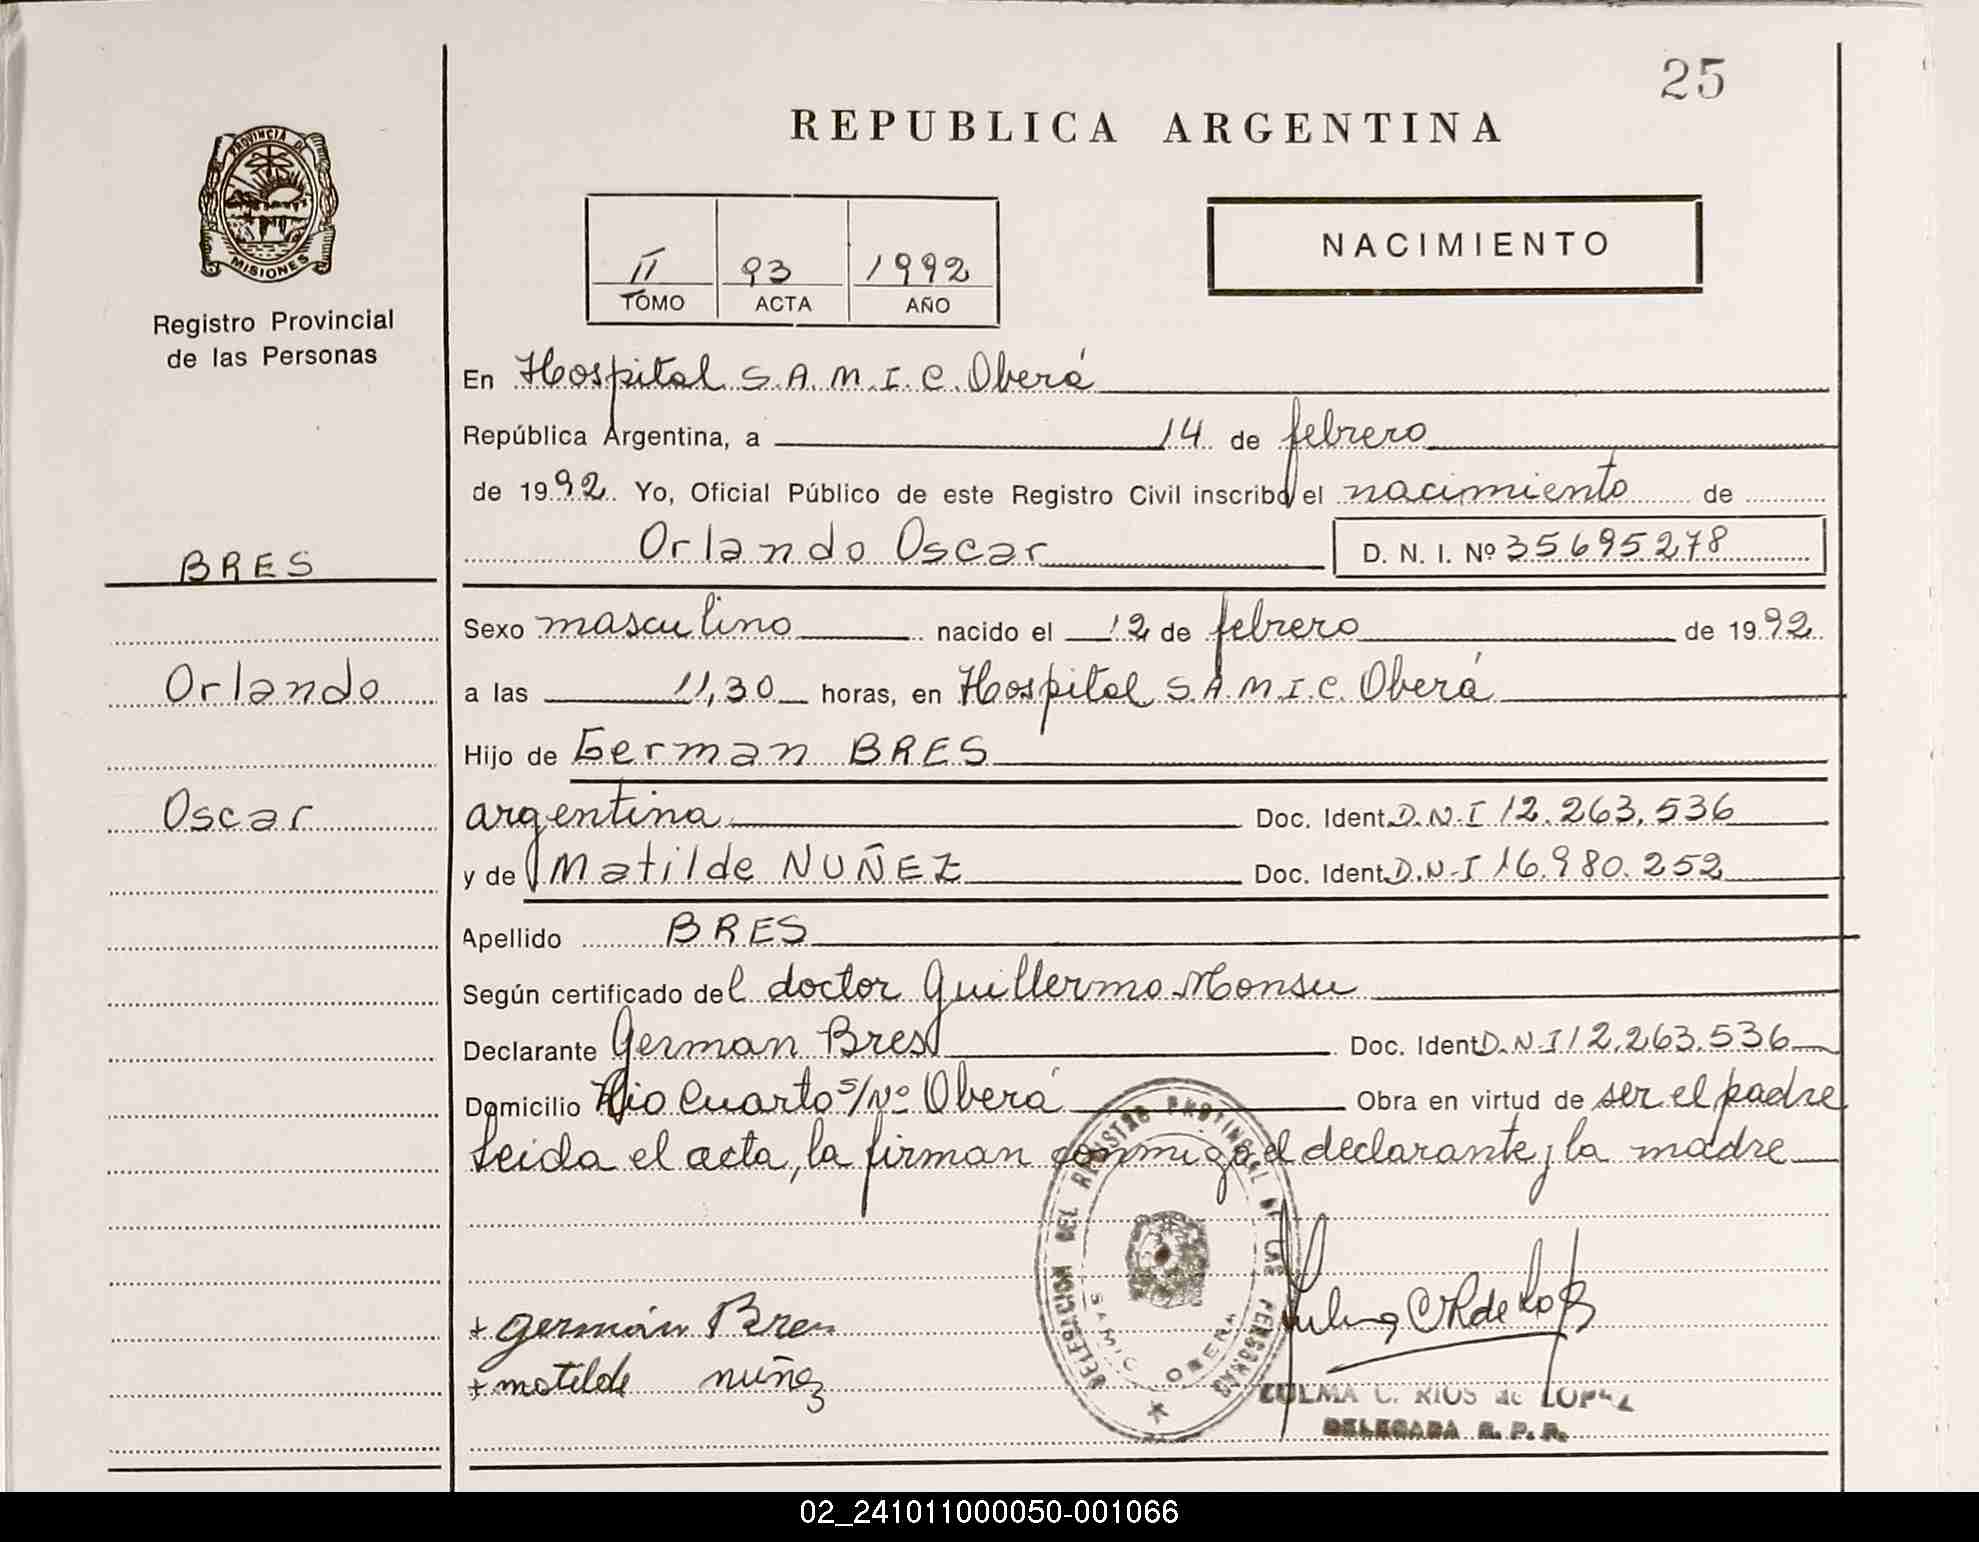 25
REPUBLICA ARGENTINA
PROVINCIA DE
MISIONES
Registro Provincial
de las Personas
II 93 1992
TOMO ACTA AÑO
NACIMIENTO
En Hospital S.A.M.I.C. Oberá
República Argentina, a 14 de febrero
de 1992. Yo, Oficial Público de este Registro Civil inscribo el nacimiento de
Orlando Oscar D. N. I. Nº 35695278
BRES
Sexo masculino nacido el 12 de febrero de 1992
Orlando
a las 11,30 horas, en Hospital S.A.M.I.C. Oberá
Hijo de German BRES
Oscar
argentina Doc. Ident. D.N.I 12.263.536
y de Matilde NUÑEZ Doc. Ident. D.N.I 16.980.252
Apellido BRES
Según certificado del doctor Guillermo Monsu
Declarante German Bres Doc. Ident. D.N.I 12.263.536
Domicilio Rio Cuarto s/Nº Oberá Obra en virtud de ser el padre
Leida el acta, la firman conmigo el declarante y la madre
DELEGACION DEL REGISTRO PROVINCIAL DE LAS PERSONAS
SAMIC OBERA
+ germán Bres
+ matilde nuñez
ZULMA C. RIOS de LOPEZ
DELEGADA R. P. P.
02_241011000050-001066